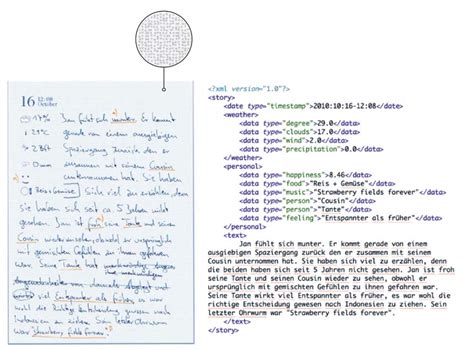 16 12:08
October
17% Jan fühlt sich munter. Er kommt
gerade von einem ausgiebigen
2 Bft Spaziergang zurück den er
0mm zusammen mit seinem Cousin
unternommen hat. Sie haben
Reis + Gemüse Sich viel zu erzählen, denn
sie haben sich seit ca. 5 Jahren nicht
gesehen. Jan ist froh seine Tante und seinen
Cousin wiederzusehen, obwohl er ursprünglich
mit gemischten Gefühlen zu ihnen gefahren
war. Seine Tante hat
viel Entspannter als früher, es war
wohl die richtige Entscheidung gewesen nach
Indonesien zu ziehen. Sein letzter Ohrwurm
war Strawberry fields forever.
<?xml version="1.0"?>
<story>
<date type="timestamp">2010:10:16-12:08</date>
<weather>
<data type="degree">29.0</data>
<data type="clouds">17.0</data>
<data type="wind">2.0</data>
<data type="precipitation">0.0</data>
</weather>
<personal>
<data type="happiness">8.46</data>
<data type="food">"Reis + Gemüse"</data>
<data type="music">"Strawberry fields forever"</data>
<data type="person">"Cousin"</data>
<data type="person">"Tante"</data>
<data type="feeling">"Entspannter als früher"</data>
</personal>
<text>
Jan fühlt sich munter. Er kommt gerade von einem
ausgiebigen Spaziergang zurück den er zusammen mit seinem
Cousin unternommen hat. Sie haben sich viel zu erzählen, denn
die beiden haben sich seit 5 Jahren nicht gesehen. Jan ist froh
seine Tante und seinen Cousin wieder zu sehen, obwohl er
ursprünglich mit gemischten Gefühlen zu ihnen gefahren war.
Seine Tante wirkt viel Entspannter als früher, es war wohl die
richtige Entscheidung gewesen nach Indonesien zu ziehen. Sein
letzter Ohrwurm war "Strawberry fields forever".